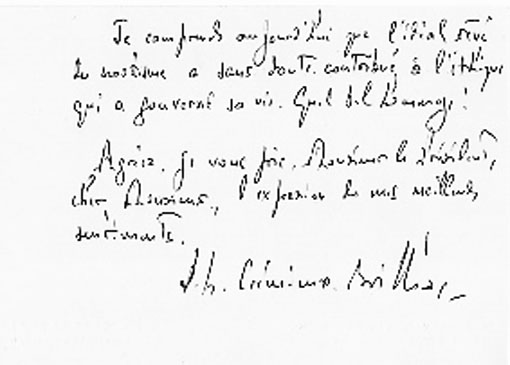 Je comprends aujourd'hui que l'idéal rêvé
du nazisme a sans doute contribué à l'éthique
qui a gouverné sa vie. Quel bel hommage !
Agréez, je vous prie, Monsieur le Président,
cher Monsieur, l'expression de mes meilleurs
sentiments.